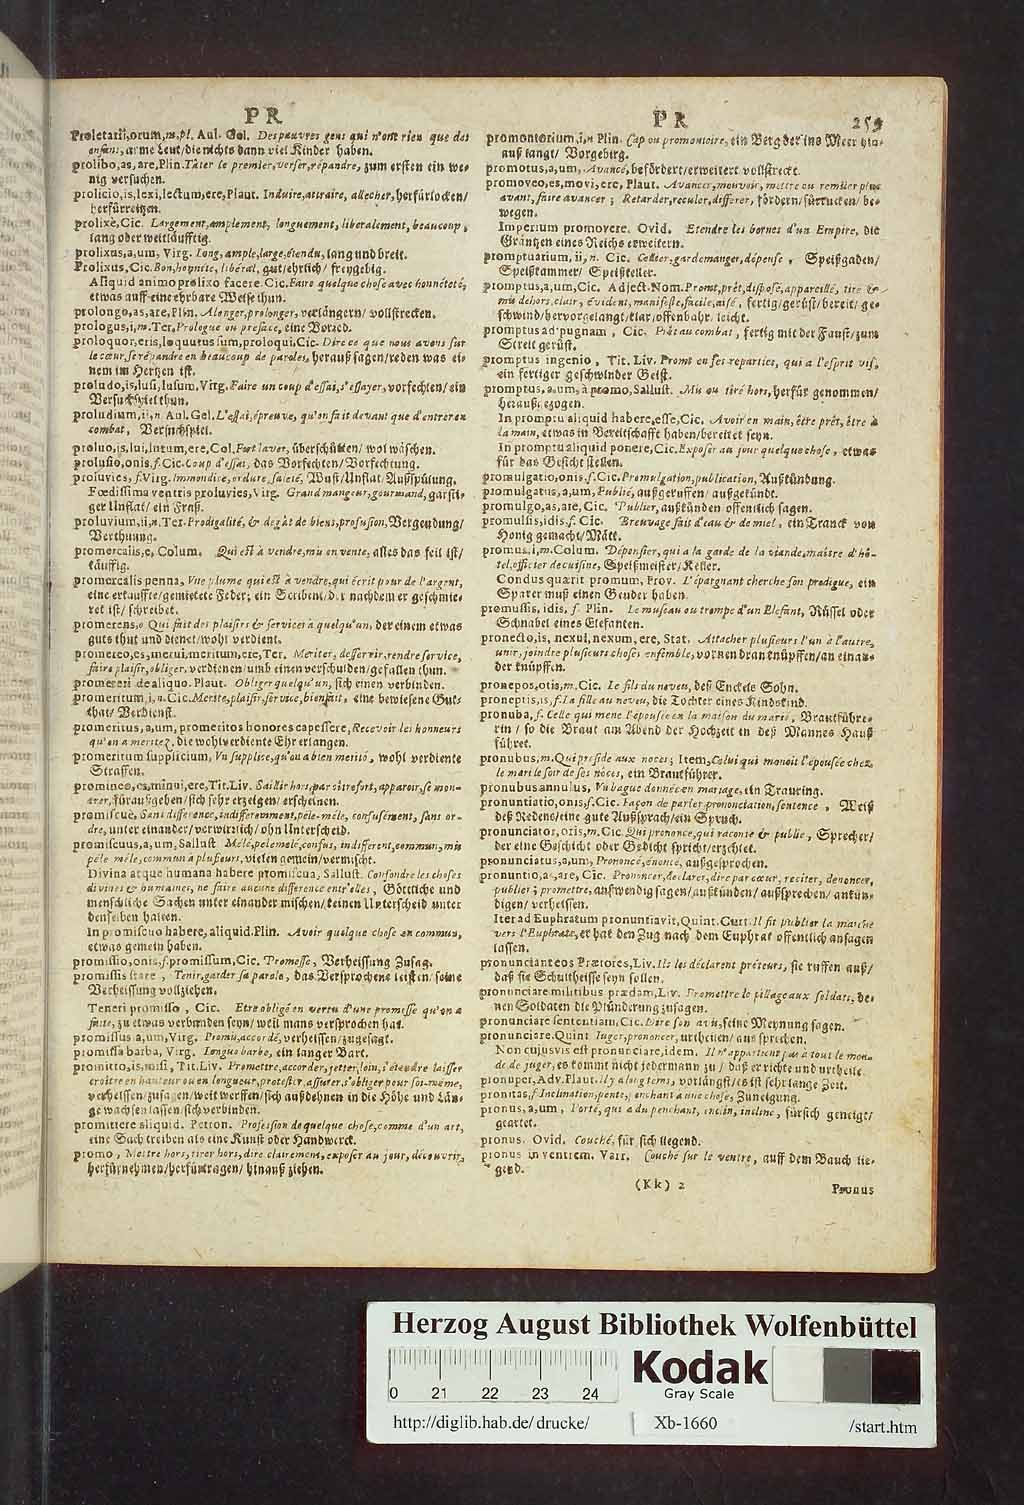 PR
Proletarii,orum,m,pl. Aul. Gel. Des pauvres gens qui n'ont rien que des
enfans, arme Leut/die nichts dann viel Kinder haben.
prolibo,as,are,Plin. Tâter le premier,verser,répandre, zum ersten ein we-
nig versuchen.
prolicio,is,lexi,lectum,ere,Plaut. Induire,attraire, allecher,herfürlocken/
herfürreitzen.
prolixè,Cic. Largement,amplement, longuement, liberalement, beaucoup,
lang oder weitläufftig.
prolixus,a,um, Virg. Long, ample,large,étendu,lang und breit.
Prolixus,Cic. Bon,honnéte, libéral, gut/ehrlich/ freygebig.
Aliquid animo prolixo facere. Cic. Faire quelque chose avec honnéteté,
etwas auff eine ehrbare Weise thun.
prolongo,as,are,Plin. Alonger,prolonger, verlängern/ vollstrecken.
prologus,i,m.Ter. Prologue ou preface, eine Vorred.
proloquor,eris,loquutus sum,proloqui,Cic. Dire ce que nous avons sur
le cœur,se répandre en beaucoup de paroles, herauß sagen/reden was ei-
nem im Hertzen ist.
proludo,is,lusi,lusum,Virg. Faire un coup d'essai,s'essayer,vorfechten/ein
Versuchspiel thun.
proludium,ii,n. Aul.Gel. L'essai,épreuve, qu'on fait devant que d'entrer en
combat, Versuchspiel.
proluo,is,lui,lutum,ere,Col. Fort laver, überschütten/ wol wäschen.
prolusio,onis,f.Cic. Coup d'essai, das Vorfechten/Vorfechtung.
proluvies,f.Virg. Immondice,ordure,saleté, Wust/Unflat/Außspülung.
Fœdissima ventris proluvies,Virg. Grand mangeur,gourmand, garsti-
ger Unflat/ ein Fraß.
proluvium,ii,n.Ter. Prodigalité, & degât de biens,profusion,Vergeudung/
Verthuung.
promercalis,e, Colum. Qui est à vendre,mis en vente, alles das feil ist/
käuffig.
promercalis penna, Une plume qui est à vendre,qui écrit pour de l'argent,
eine erkauffte/gemietete Feder; ein Scribent/der nachdem er geschmie-
ret ist/ schreibet.
promerens,o Qui fait des plaisirs & services à quelqu'un, der einem etwas
guts thut und dienet/wohl verdient.
promereo,es,merui,meritum,ere,Ter. Meriter, desservir, rendre service,
faire plaisir,obliger, verdienen/umb einen verschulden/gefallen thun.
promereri de aliquo. Plaut. Obliger quelqu'un, sich einen verbinden.
promeritum,i,n.Cic. Merite,plaisir,service,bienfait, eine bewiesene Gut-
that/ Verdienst.
promeritus,a,um, promeritos honores capessere, Recevoir les honneurs
qu'on a meritez, die wohlverdiente Ehr erlangen.
promeritum supplicium, Un supplice,qu'on a bien merité, wohl verdiente
Straffen.
promineo,es,minui,ere,Tit.Liv. Saillir hors,paroitre fort, apparoir,se mon-
trer,fürauß gehen/sich sehr erzeigen/erscheinen.
promiscuè, Sans difference,indifferemment,péle-méle, confusément, sans or-
dre, unter einander/verwirrlich/ ohn Unterscheid.
promiscuus,a,um, Sallust. Mêlé,pelemelé,confus, indifferent,commun,mis
péle méle,commun à plusieurs, vielen gemein/vermischt.
Divina atque humana habere promiscua, Sallust. Confondre les choses
divines & humaines, ne faire aucune difference entr'elles, Göttliche und
menschliche Sachen unter einander mischen/keinen Unterscheid unter
denselben halten.
In promiscuo habere, aliquid. Plin. Avoir quelque chose en commun,
etwas gemein haben.
promissio,onis,f.promissum,Cic. Promesse, Verheissung Zusag.
promissis stare, Tenir,garder sa parole, das Versprochene leisten/ seine
Verheissung vollziehen.
Teneri promisso, Cic. Etre obligé en vertu d'une promesse qu'on a
faite, zu etwas verbunden seyn/ weil mans versprochen hat.
promissus,a,um,Virg. Promis,accordé, verheissen/zugesagt.
promissa barba, Virg. Longue barbe, ein langer Bart.
promitto,is,misi, Tit.Liv. Promettre,accorder,jetter,loin,s'étendre laisser
croître en hauteur ou en longueur,protester, assurer,s'obliger pour soi-même,
verheissen/zusagen/weit werffen/sich außdehnen in die Höhe und Län-
ge wachsen lassen/sich verbinden.
promittere aliquid. Petron. Profession de quelque chose,comme d'un art,
eine Sach treiben als eine Kunst oder Handwerck.
promo, Mettre hors,tirer hors, dire clairement, exposer au jour, découvrir,
herfürnehmen/herfürtragen/ hinauß ziehen.
PR 259
promontorium,i,n Plin. Cap ou promontoire, ein Berg der ins Meer hin-
auß langt/ Vorgebirg.
promotus,a,um, Avancé,befördert/erweitert vollstreckt.
promoveo,es,movi,ere, Plaut. Avancer,mouvoir,mettre ou remüer plus
avant,faire avancer; Retarder,reculer,differer, fördern/fürrucken/be-
wegen.
Imperium promovere. Ovid. Etendre les bornes d'un Empire, die
Gräntzen eines Reichs erweitern.
promptuarium, ii, n. Cic. Cellier,gardemanger,dépense, Speißgaden/
Speißkammer/ Speißkeller.
promptus,a,um,Cic. Adject.Nom. Promt,prêt,disposé,appareillé, tiré &
mis dehors,clair, évident,manifeste,facile,aisé, fertig/gerüst/bereit/ge-
schwind/hervorgelangt/klar/offenbahr/leicht.
promptus ad pugnam, Cic. Prêt au combat, fertig mit der Faust/zum
Streit gerüst.
promptus ingenio, Tit. Liv. Promt en ses reparties, qui a l'esprit vif,
ein fertiger geschwinder Geist.
promptus,a,um, à promo,Sallust. Mis ou tiré hors,herfür genommen/
heraußgezogen.
In promptu aliquid habere,esse,Cic. Avoir en main, être prêt, être à
la main, etwas in Bereitschafft haben/bereitet seyn.
In promptu aliquid ponere,Cic. Exposer au jour quelque chose, etwas
für das Gesicht stellen.
promulgatio,onis,f.Cic. Promulgation,publication, Außkündung.
promulgatus,a,um, Publié, außgeruffen/ außgekündt.
promulgo,as,are, Cic. Publier, außkünden öffentlich sagen.
promulsis,idis,f. Cic. Breuvage fait d'eau & de miel, ein Tranck von
Honig gemacht/Mätt.
promus,i,m.Colum. Dépensier,qui a la garde de la viande,maître d'hô-
tel,officier de cuisine, Speißmeister/Keller.
Condus quærit promum, Prov. L'épargnant cherche son prodigue, ein
Sparer muß einen Geuder haben.
promussis, idis, f. Plin. Le museau ou trompe d'un Elefant, Rüssel oder
Schnabel eines Elefanten.
pronecto,is, nexui,nexum,ere, Stat. Attacher plusieurs l'un à l'autre,
unir,joindre plusieurs choses ensemble, vornen dran knüpffen/an einan-
der knüpffen.
pronepos,otis,m.Cic. Le fils du neveu, deß Enckels Sohn.
proneptis,is,f. La fille au neveu, die Tochter eines Kindskind.
pronuba,f. Celle qui mene l'épousée en la maison du marié, Brautführe-
rin/ so die Braut am Abend der Hochzeit in deß Mannes Hauß
führet.
pronubus,m. Qui preside aux noces; Item, Celui qui menoit l'épousée chez
le mari le soir de ses nòces, ein Brautführer.
pronubus annulus, Un bague donnée en mariage, ein Trauring.
pronuntiatio,onis,f.Cic. Façon de parler,prononciation,sentence, Weiß
deß Redens/eine gute Außsprach/ein Spruch.
pronunciator,oris,m.Cic. Qui prononce,qui raconte & publie, Sprecher/
der eine Geschicht oder Gedicht spricht/erzehlet.
pronunciatus,a,um, Prononcé,énoncé, außgesprochen.
pronuntio,as,are, Cic. Prononcer,declarer,dire par cœur, reciter, denoncer,
publier; promettre,außwendig sagen/außkünden/ außsprechen/ ankün-
digen/ verheissen.
Iter ad Euphratum pronuntiavit,Quint.Curt. Il fit publier la marche
vers l'Euphrate,er hat den Zug nach dem Euphrat öffentlich ansagen
lassen.
pronuncianteos Prætores,Liv. Ils les déclarent préteurs, sie ruffen auß/
daß sie Schultheisse seyn sollen.
pronunciare militibus prædam, Liv. Promettre le pillage aux soldats, de-
nen Soldaten die Plünderung zusagen.
pronunciare sententiam,Cic. Dire son avis,seine Meynung sagen.
pronunciare. Quint Juger,prononcer, urtheilen/ außsprechen.
Non cujusvis est pronunciare,idem. Il n'appartient pas à tout le mon-
de de juger, es kommt nicht jedermann zu/ daß er richte und urtheile.
pronuper,Adv.Plaut. Il y a longtems, vorlängst/es ist sehr lange Zeit.
pronitas,f Inclination,pente,penchant a une chose, Zuneigung.
pronus,a,um, Porté, qui a du penchant, inclin, incliné, fürsich geneigt/
geartet.
pronus. Ovid. Couché, für sich liegend.
pronus in ventrem. Varr. Couché sur le ventre, auff dem Bauch lie-
gend.
(Kk) 2
Pronus
Herzog August Bibliothek Wolfenbüttel
0 21 22 23 24
Kodak
Gray Scale
http://diglib.hab.de/ drucke/ Xb-1660 /start.htm